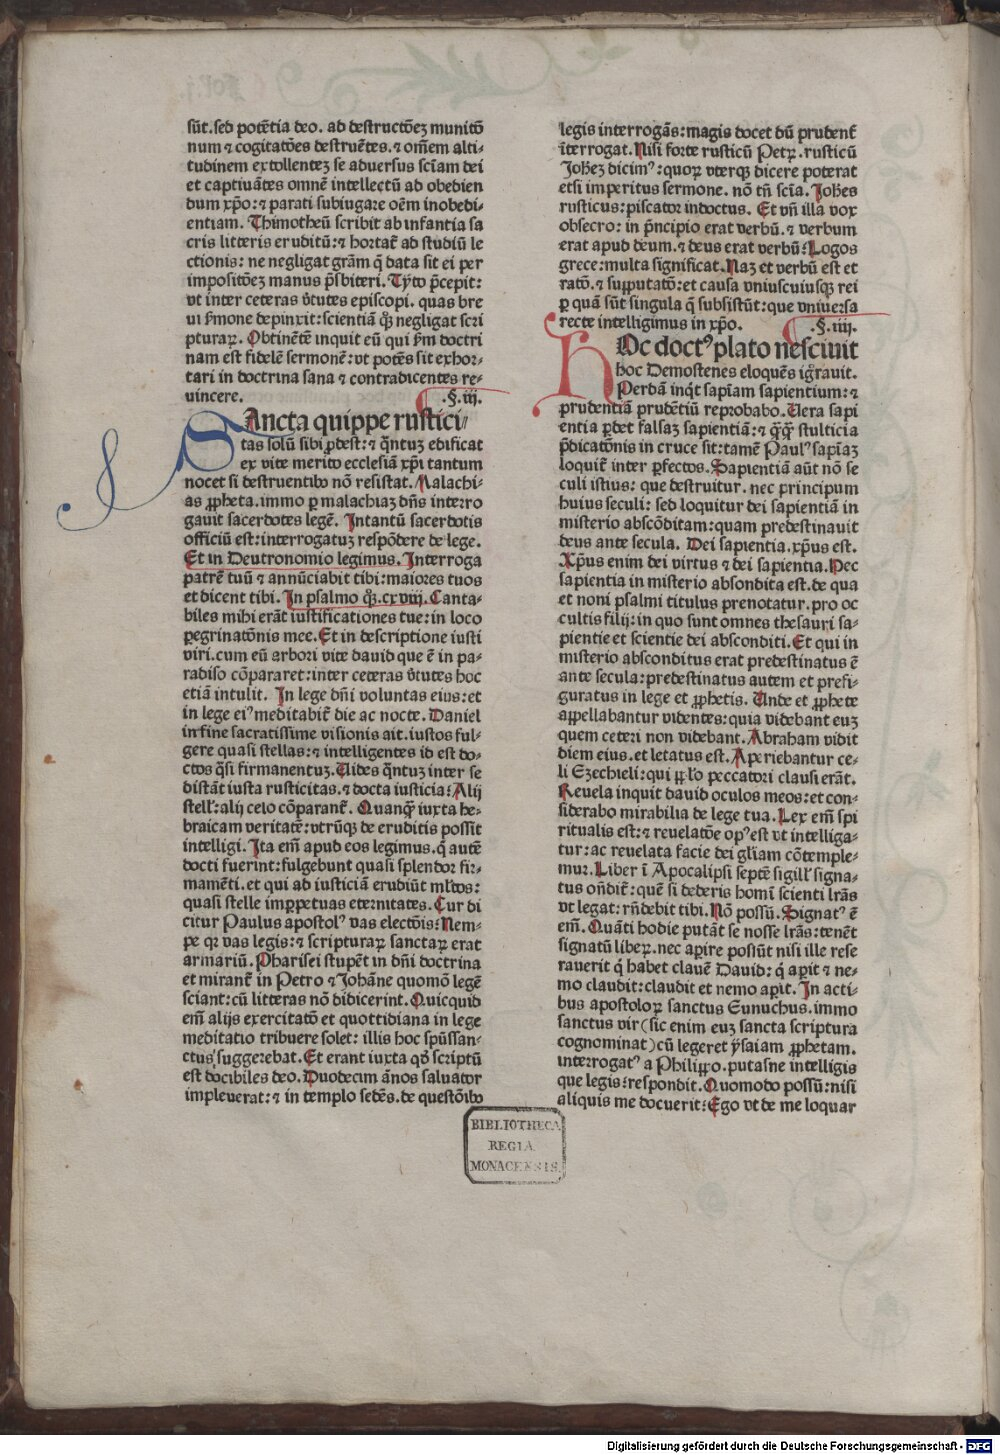 sūt. sed potētia deo. ad destructōeꝫ munitō
num ⁊ cogitatōes destruētes. ⁊ om̄em alti⸗
tudinem extollenteꝫ se adversus sciām dei
et captivātes omnē intellectū ad obedien
dum xp̄o: ⁊ parati subiugare oēm inobedi⸗
entiam. Thimotheū scribit ab infantia sa
cris litteris eruditū: ⁊ hortat᷑ ad studiū le
ctionis: ne negligat grām q̄ data sit ei per
impositōeꝫ manus p̄sbiteri. Tyto p̄cepit:
vt inter ceteras v̄tutes episcopi. quas bre
ui s̄mone depinxit: scientiā qꝫ negligat scri
pturaꝝ. Obtinētē inquit eū qui s̄m doctri
nam est fidelē sermonē: vt potēs sit exhor⸗
tari in doctrina sana ⁊ contradicentes re⸗
uincere. .§. iij.
SAncta quippe rustici⸗
tas solū sibi ꝓdest: ⁊ q̄ntuꝫ edificat
ex vite merito ecclesiā xp̄i tantum
nocet si destruentibꝰ nō resistat. Malachi⸗
as ꝓpheta. immo ꝑ malachiaꝫ dn̄s interro
gauit sacerdotes legē. Intantū sacerdotis
officiū est: interrogatuꝫ respōdere de lege.
Et in Deutronomio legimus. Interroga
patrē tuū ⁊ annūciabit tibi: maiores tuos
et dicent tibi. In psalmo qꝫ. cxviij. Canta⸗
biles mihi erāt iustificationes tue: in loco
ꝑegrinatōnis mee. Et in descriptione iusti
viri. cum eū arbori vite dauid que ē in pa⸗
radiso cōpararet: inter ceteras v̄tutes hoc
etiā intulit. In lege dn̄i voluntas eius: et
in lege eiꝰ meditabit᷑ die ac nocte. Daniel
in fine sacratissime visionis ait. iustos ful⸗
gere quasi stellas: ⁊ intelligentes id est do⸗
ctos q̄si firmamentuꝫ. Uides q̄ntuꝫ inter se
distāt iusta rusticitas. ⁊ docta iusticia: Alij
stell᷑: alij celo cōparant᷑. Quanqꝫ iuxta he⸗
braicam veritatē: vtrūqꝫ de eruditis possit
intelligi. Ita em̄ apud eos legimus. q̄ autē
docti fuerint: fulgebunt quasi splendor fir⸗
mamēti. et qui ad iusticiā erudiūt ml̄tos:
quasi stelle imꝑpetuas eternitates. Cur di
citur Paulus apostolꝰ vas electōis: Nem⸗
pe qꝛ vas legis: ⁊ scripturaꝝ sanctaꝝ erat
armariū. Pharisei stupēt in dn̄i doctrina
et mirant᷑ in Petro ⁊ Johāne quomō legē
sciant: cū litteras nō didicerint. Quicquid
em̄ alijs exercitatō et quottidiana in lege
meditatio tribuere solet: illis hoc spūssan⸗
ctus suggerebat. Et erant iuxta qd̄ scriptū
est docibiles deo. Duodecim ānos saluator
impleuerat: ⁊ in templo sedēs. de questōibꝰ
legis interrogās: magis docet dū prudent᷑
īterrogat. Nisi forte rusticū Petꝝ. rusticū
Joheꝫ dicimꝰ: quoꝝ vterqꝫ dicere poterat
etsi imperitus sermone. nō tn̄ scīa. Johēs
rusticus: piscator indoctus. Et vn̄ illa vox
obsecro: in p̄ncipio erat verbū. ⁊ verbum
erat apud deum. ⁊ deus erat verbū: Logos
grece: multa significat. Naꝫ et verbū est et
ratō. ⁊ supputatō: et causa vniuscuiusqꝫ rei
ꝑ quā sūt singula q̄ subsistūt: que vniuersa
recte intelligimus in xp̄o. .§. iiij.
HOc doctꝰ plato nesciuit
hoc Demostenes eloquēs igrauit.
Perdā inq̄t sapīam sapientium: ⁊
prudentiā prudētiū reprobabo. Uera sapi
entia ꝑdet falsaꝫ sapientiā: ⁊ qꝫqꝫ stulticia
p̄dicatōnis in cruce sit: tamē Paulꝰ sapīaꝫ
loquit᷑ inter ꝑfectos. Sapientiā aūt nō se
culi istius: que destruitur. nec principum
huius seculi: sed loquitur dei sapientiā in
misterio abscōditam: quam predestinauit
deus ante secula. Dei sapientia. xp̄us est.
Xp̄us enim dei virtus ⁊ dei sapientia. Nec
sapientia in misterio absondita est. de qua
et noni psalmi titulus prenotatur. pro oc
cultis filij: in quo sunt omnes thesauri sa⸗
pientie et scientie dei absconditi. Et qui in
misterio absconditus erat predestinatus ē
ante secula: predestinatus autem et prefi⸗
guratus in lege et ꝓphetis. Unde et ꝓphete
appellabantur videntes: quia videbant euꝫ
quem ceteri non videbant. Abraham vidit
diem eius. et letatus est. Aperiebantur ce⸗
li Ezechieli: qui ppl̄o peccatori clausi erāt.
Reuela inquit dauid oculos meos: et con⸗
siderabo mirabilia de lege tua. Lex em̄ spi
ritualis est: ⁊ reuelatōe opꝰ est vt intelliga⸗
tur: ac reuelata facie dei glīam cōtemple⸗
mur. Liber ī Apocalipsi septē sigill᷑ signa⸗
tus on̄dit᷑: quē si dederis homī scienti lrās
vt legat: rn̄debit tibi. Nō possū. Signatꝰ ē
em̄. Quāti hodie putāt se nosse lrās: tenēt
signatū libeꝝ. nec aꝑire possūt nisi ille rese
rauerit q̄ habet clauē Dauid: q̄ aꝑit ⁊ ne⸗
mo claudit: claudit et nemo aꝑit. In acti⸗
bus apostoloꝝ sanctus Eunuchus. immo
sanctus vir (sic enim euꝫ sancta scriptura
cognominat) cū legeret ysaiam ꝓphetam.
interrogatꝰ a Philippo. putasne intelligis
que legis: respondit. Quomodo possū: nisi
aliquis me docuerit: Ego vt de me loquar
BIBLIOTHECA
REGIA
MONACENSIS.
Digitalisierung gefördert durch die Deutsche Forschungsgemeinschaft - DFG